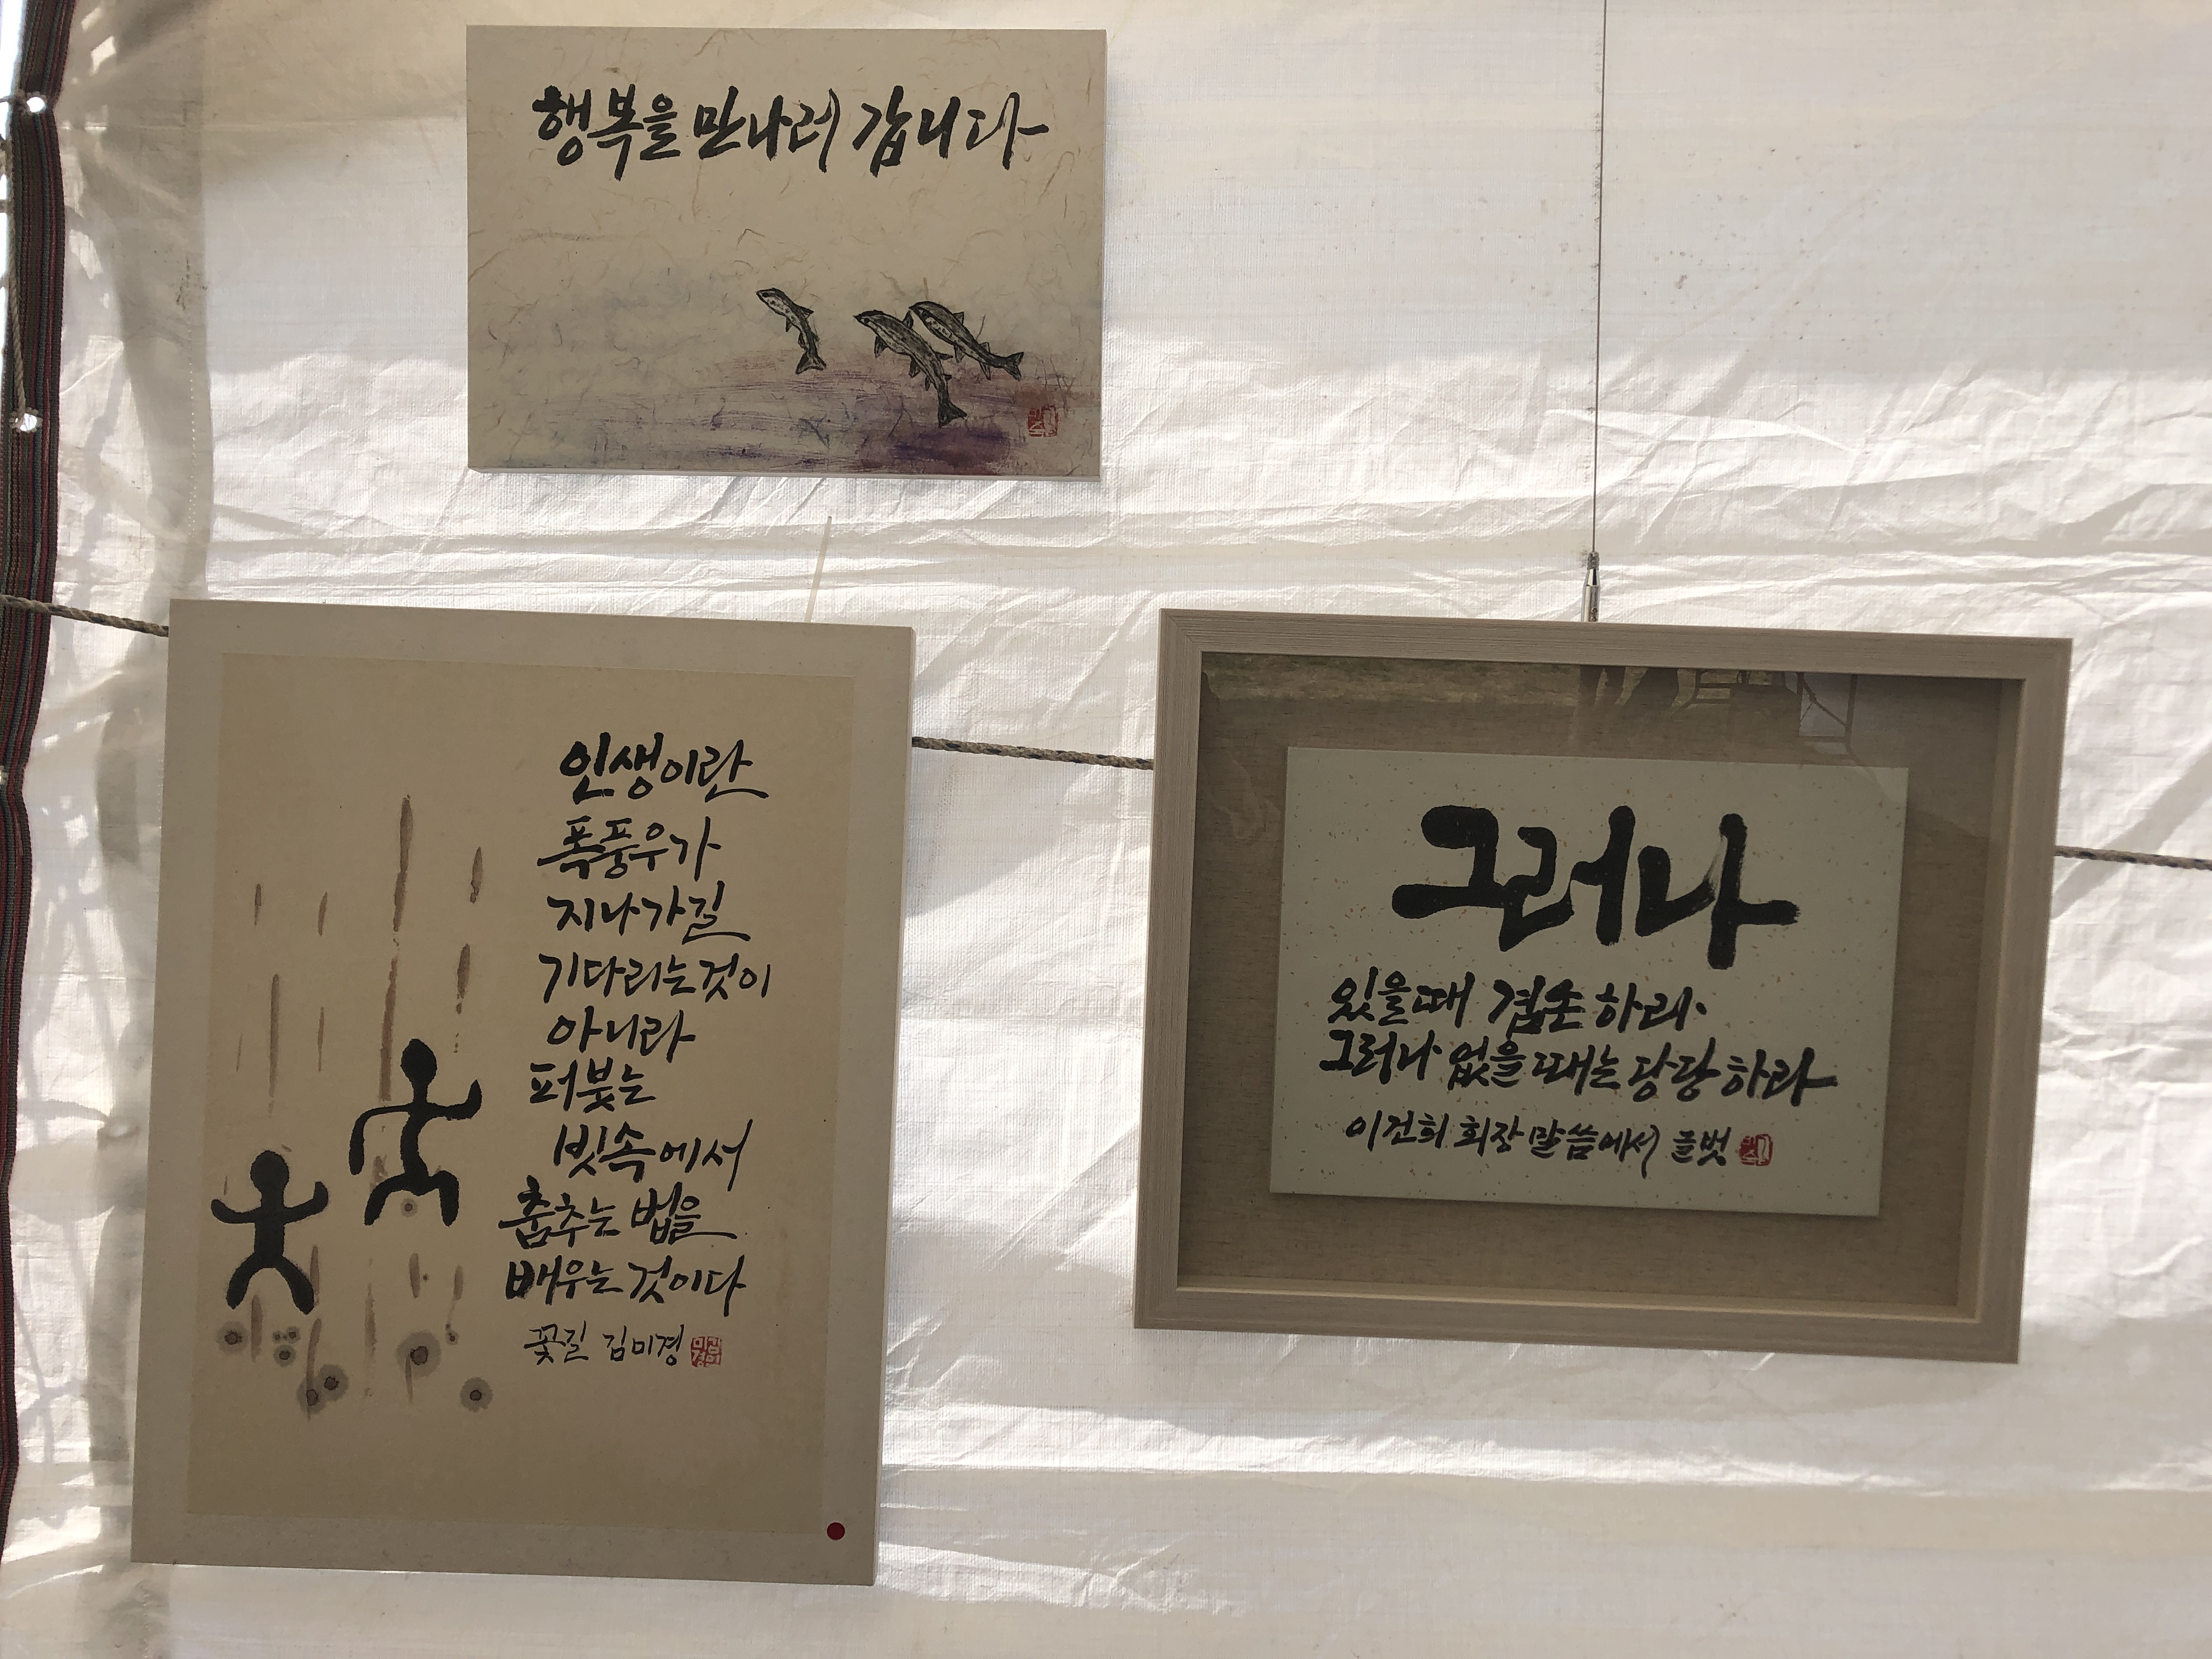 행복을 만나러 갑니다
인생이란
폭풍우가
지나가길
기다리는것이
아니라
퍼붓는
빗속에서
춤추는 법을
배우는 것이다
꽃길 김미경
그러나
있을때 겸손하라.
그러나 없을때는 당당하라
이건희 회장 말씀에서 들벗